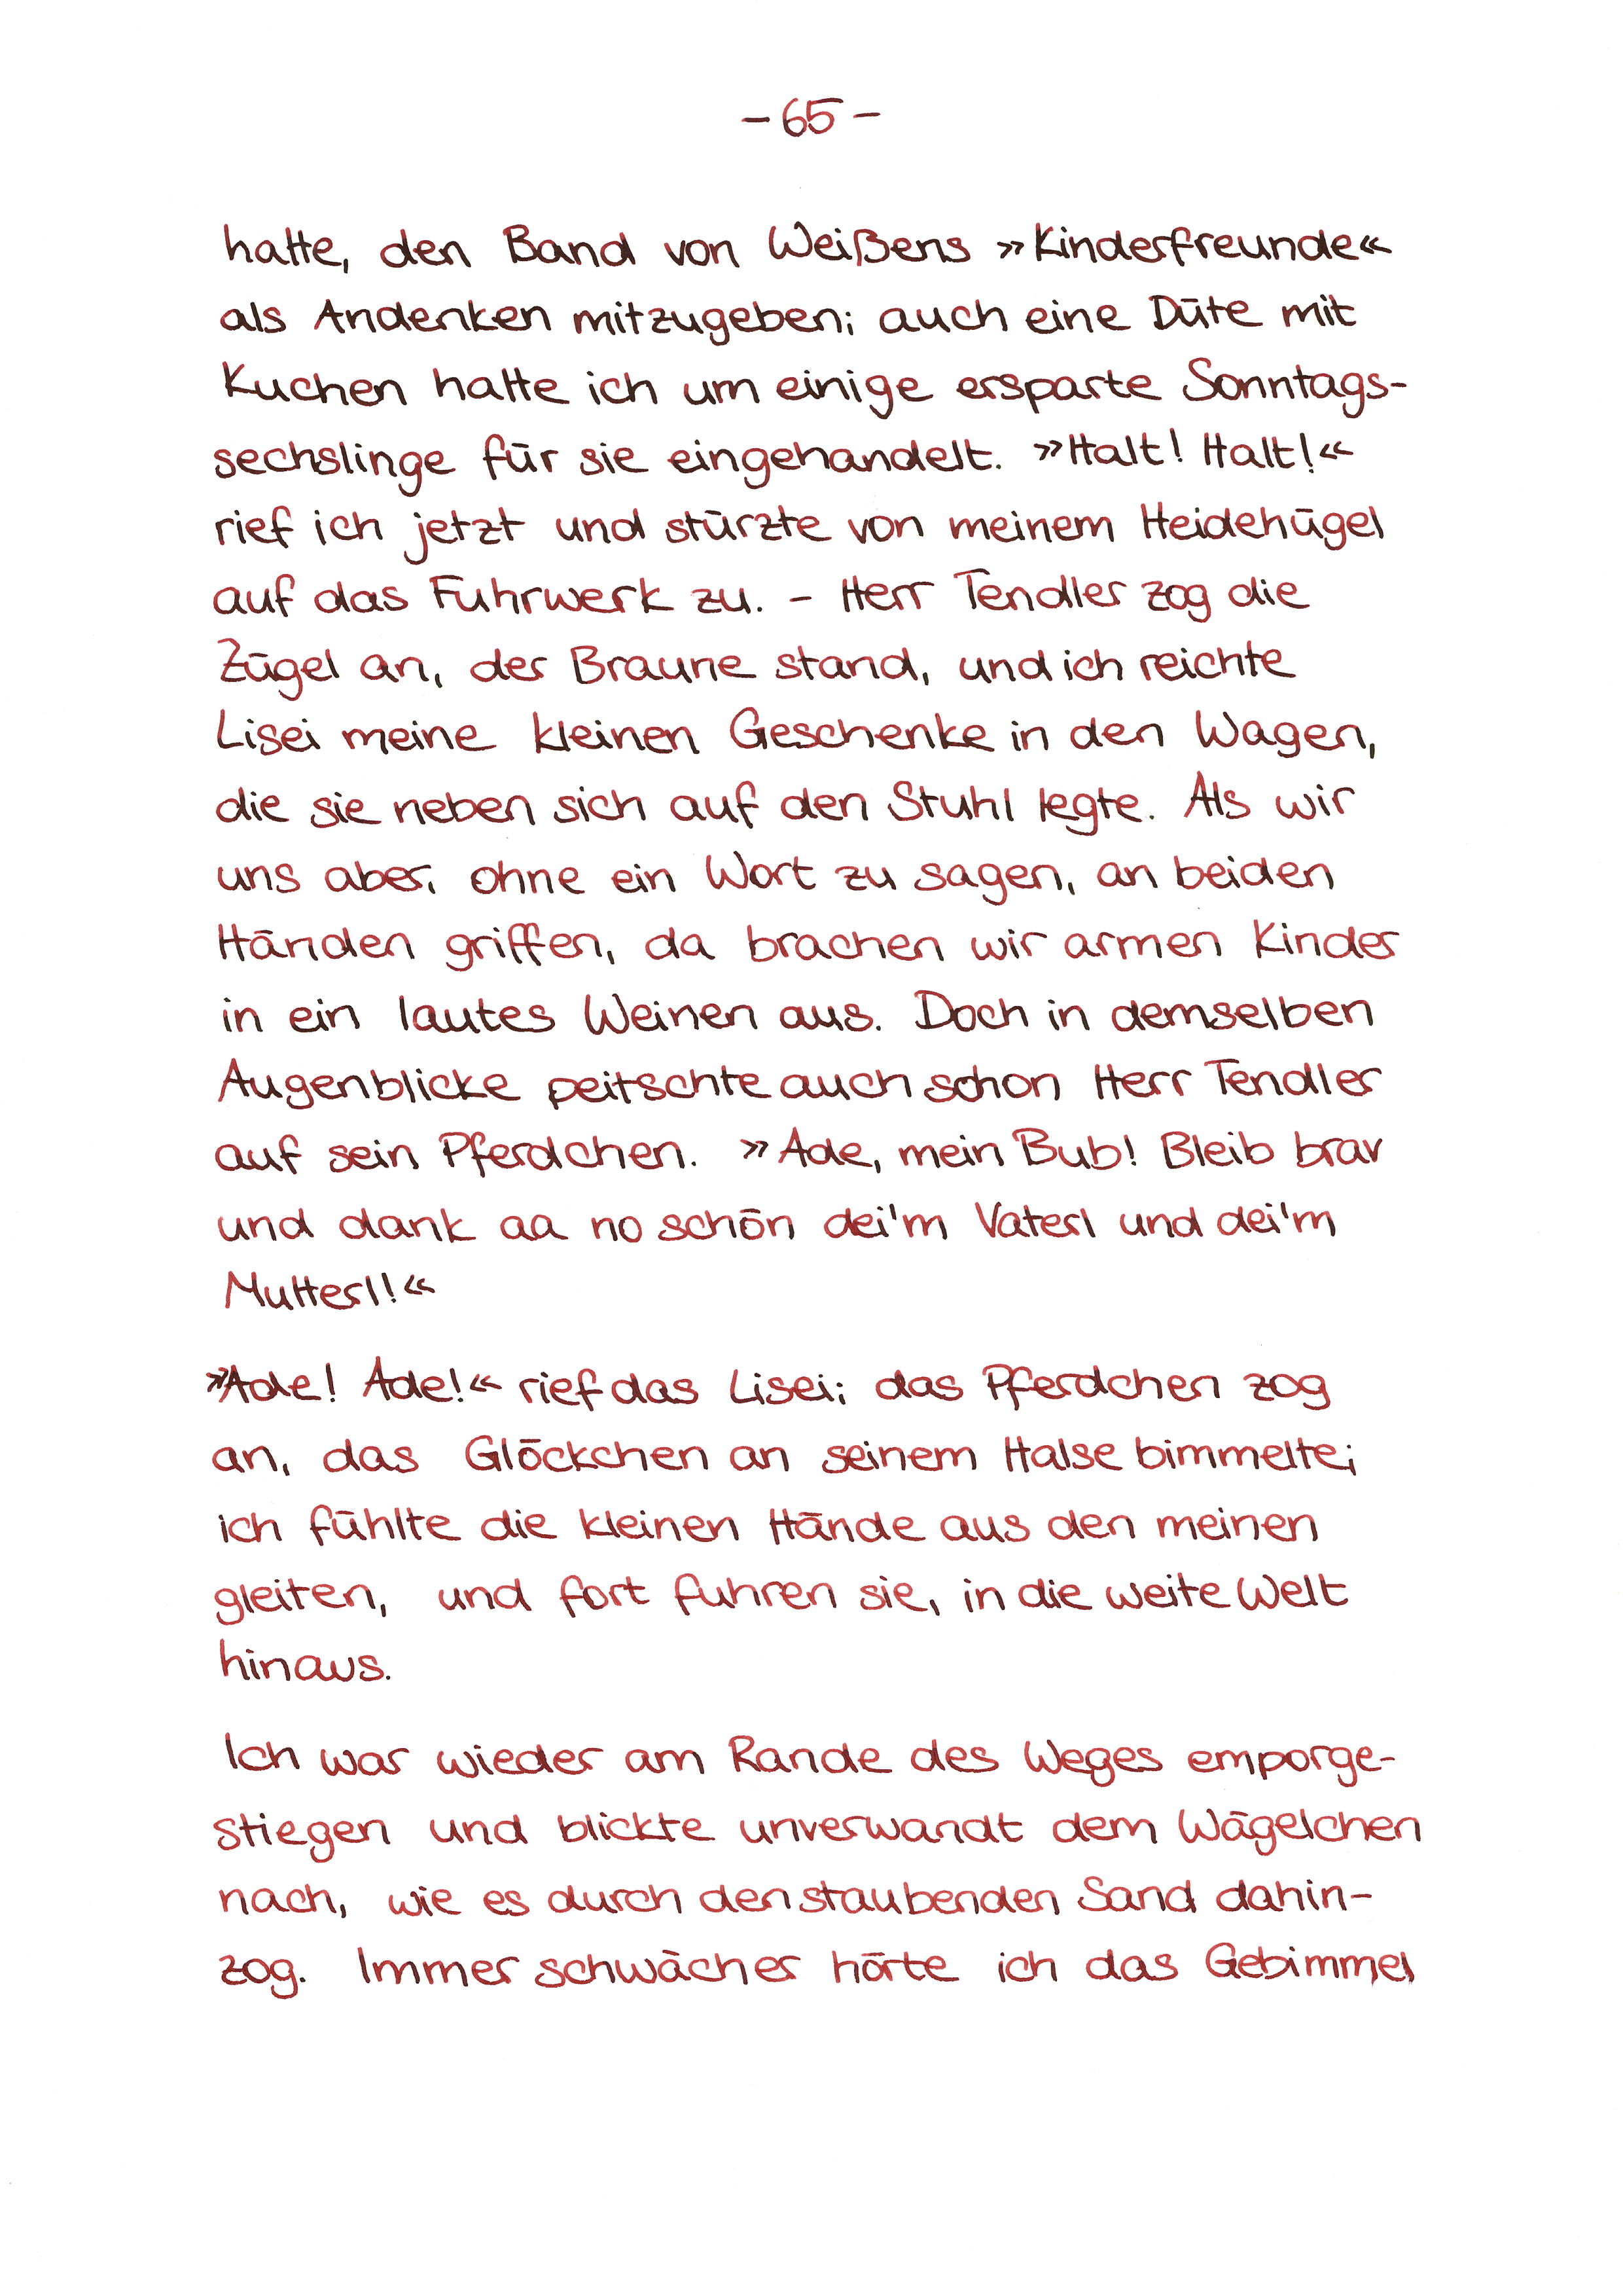 - 65 -
hatte, den Band von Weißens »Kinderfreunde«
als Andenken mitzugeben; auch eine Düte mit
Kuchen hatte ich um einige ersparte Sonntags-
sechslinge für sie eingehandelt. »Halt! Halt!«
rief ich jetzt und stürzte von meinem Heidehügel
auf das Fuhrwerk zu. - Herr Tendler zog die
Zügel an, der Braune stand, und ich reichte
Lisei meine kleinen Geschenke in den Wagen,
die sie neben sich auf den Stuhl legte. Als wir
uns aber, ohne ein Wort zu sagen, an beiden
Händen griffen, da brachen wir armen Kinder
in ein lautes Weinen aus. Doch in demselben
Augenblicke peitschte auch schon Herr Tendler
auf sein Pferdchen. »Ade, mein Bub! Bleib brav
und dank aa no schön dei'm Vaterl und dei'm
Mutterl!«
»Ade! Ade!« rief das Lisei; das Pferdchen zog
an, das Glöckchen an seinem Halse bimmelte;
ich fühlte die kleinen Hände aus den meinen
gleiten, und fort fuhren sie, in die weite Welt
hinaus.
Ich war wieder am Rande des Weges emporge-
stiegen und blickte unverwandt dem Wägelchen
nach, wie es durch den staubenden Sand dahin-
zog. Immer schwächer hörte ich das Gebimmel